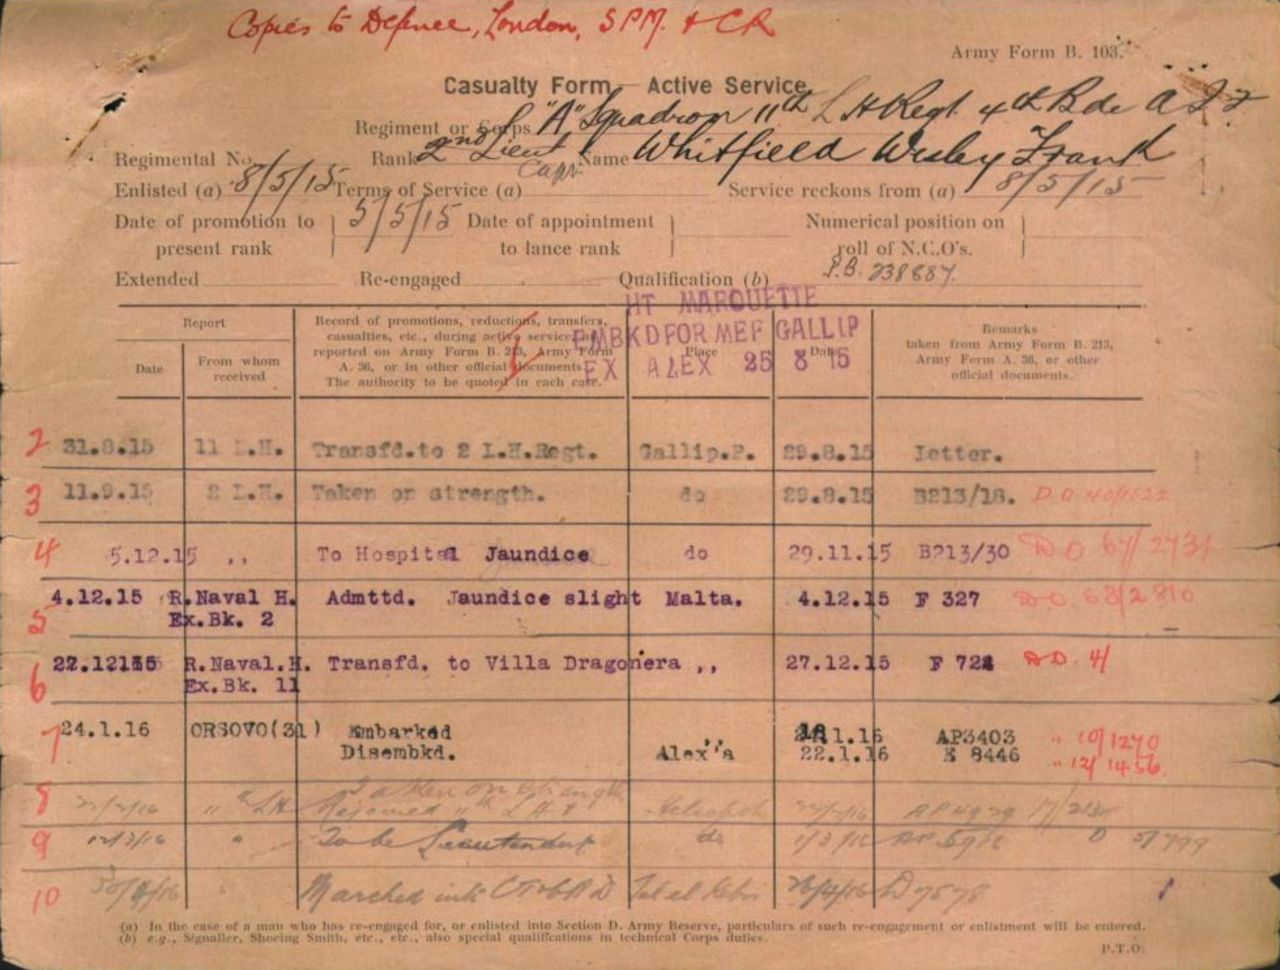 Copies to Defence, London, SPM. & CR
Army Form B. 103.
Casualty Form — Active Service.
Regiment or Corps "A" Squadron 11th L H Regt. 4th Bde A I F
Regimental No. Rank 2nd Lieut Name Whitfield Wesley Frank
Capt.
Enlisted (a) 8/5/15 Terms of Service (a) Service reckons from (a) 8/5/15
Date of promotion to present rank 5/5/15 Date of appointment to lance rank Numerical position on roll of N.C.O's.
P.B. 238887.
Extended Re-engaged Qualification (b)
HT MARQUETTE
EMBKD FOR MEF GALLIP
EX ALEX 25 8 15
Report
Date
From whom received
Record of promotions, reductions, transfers, casualties, etc., during active service, as reported on Army Form B. 213, Army Form A. 36, or in other official documents. The authority to be quoted in each case.
Place
Date
Remarks
taken from Army Form B. 213, Army Form A. 36, or other official documents.
2 31.8.15 11 L.H. Transfd.to 2 L.H.Regt. Gallip.P. 29.8.15 Letter.
3 11.9.15 2 L.H. Taken on strength. do 29.8.15 B213/18. D.O. 40/1522
4 5.12.15 ,, To Hospital Jaundice do 29.11.15 B213/30 D O 67/2731
5 4.12.15 R.Naval H. Admttd. Jaundice slight Malta. 4.12.15 F 327 D O 68/2810
Ex.Bk. 2
6 27.12.15 R.Naval.H. Transfd. to Villa Dragonera ,, 27.12.15 F 722 D O. 4/
Ex.Bk. 11
7 24.1.16 ORSOVO(31) Embarked 18.1.16 AP3403 " 10/1270
Disembkd. Alex''a 22.1.16 E 8446 " 12/1456
8 Taken on strength
Rejoined 11th L.H. Heliopolis
9 12/3/16 " To be Lieutenant do 1/3/16
10 Marched into Tel el Kebir D 7578
(a) In the case of a man who has re-engaged for, or enlisted into Section D. Army Reserve, particulars of such re-engagement or enlistment will be entered.
(b) e.g., Signaller, Shoeing Smith, etc., etc., also special qualifications in technical Corps duties.
P.T.O.